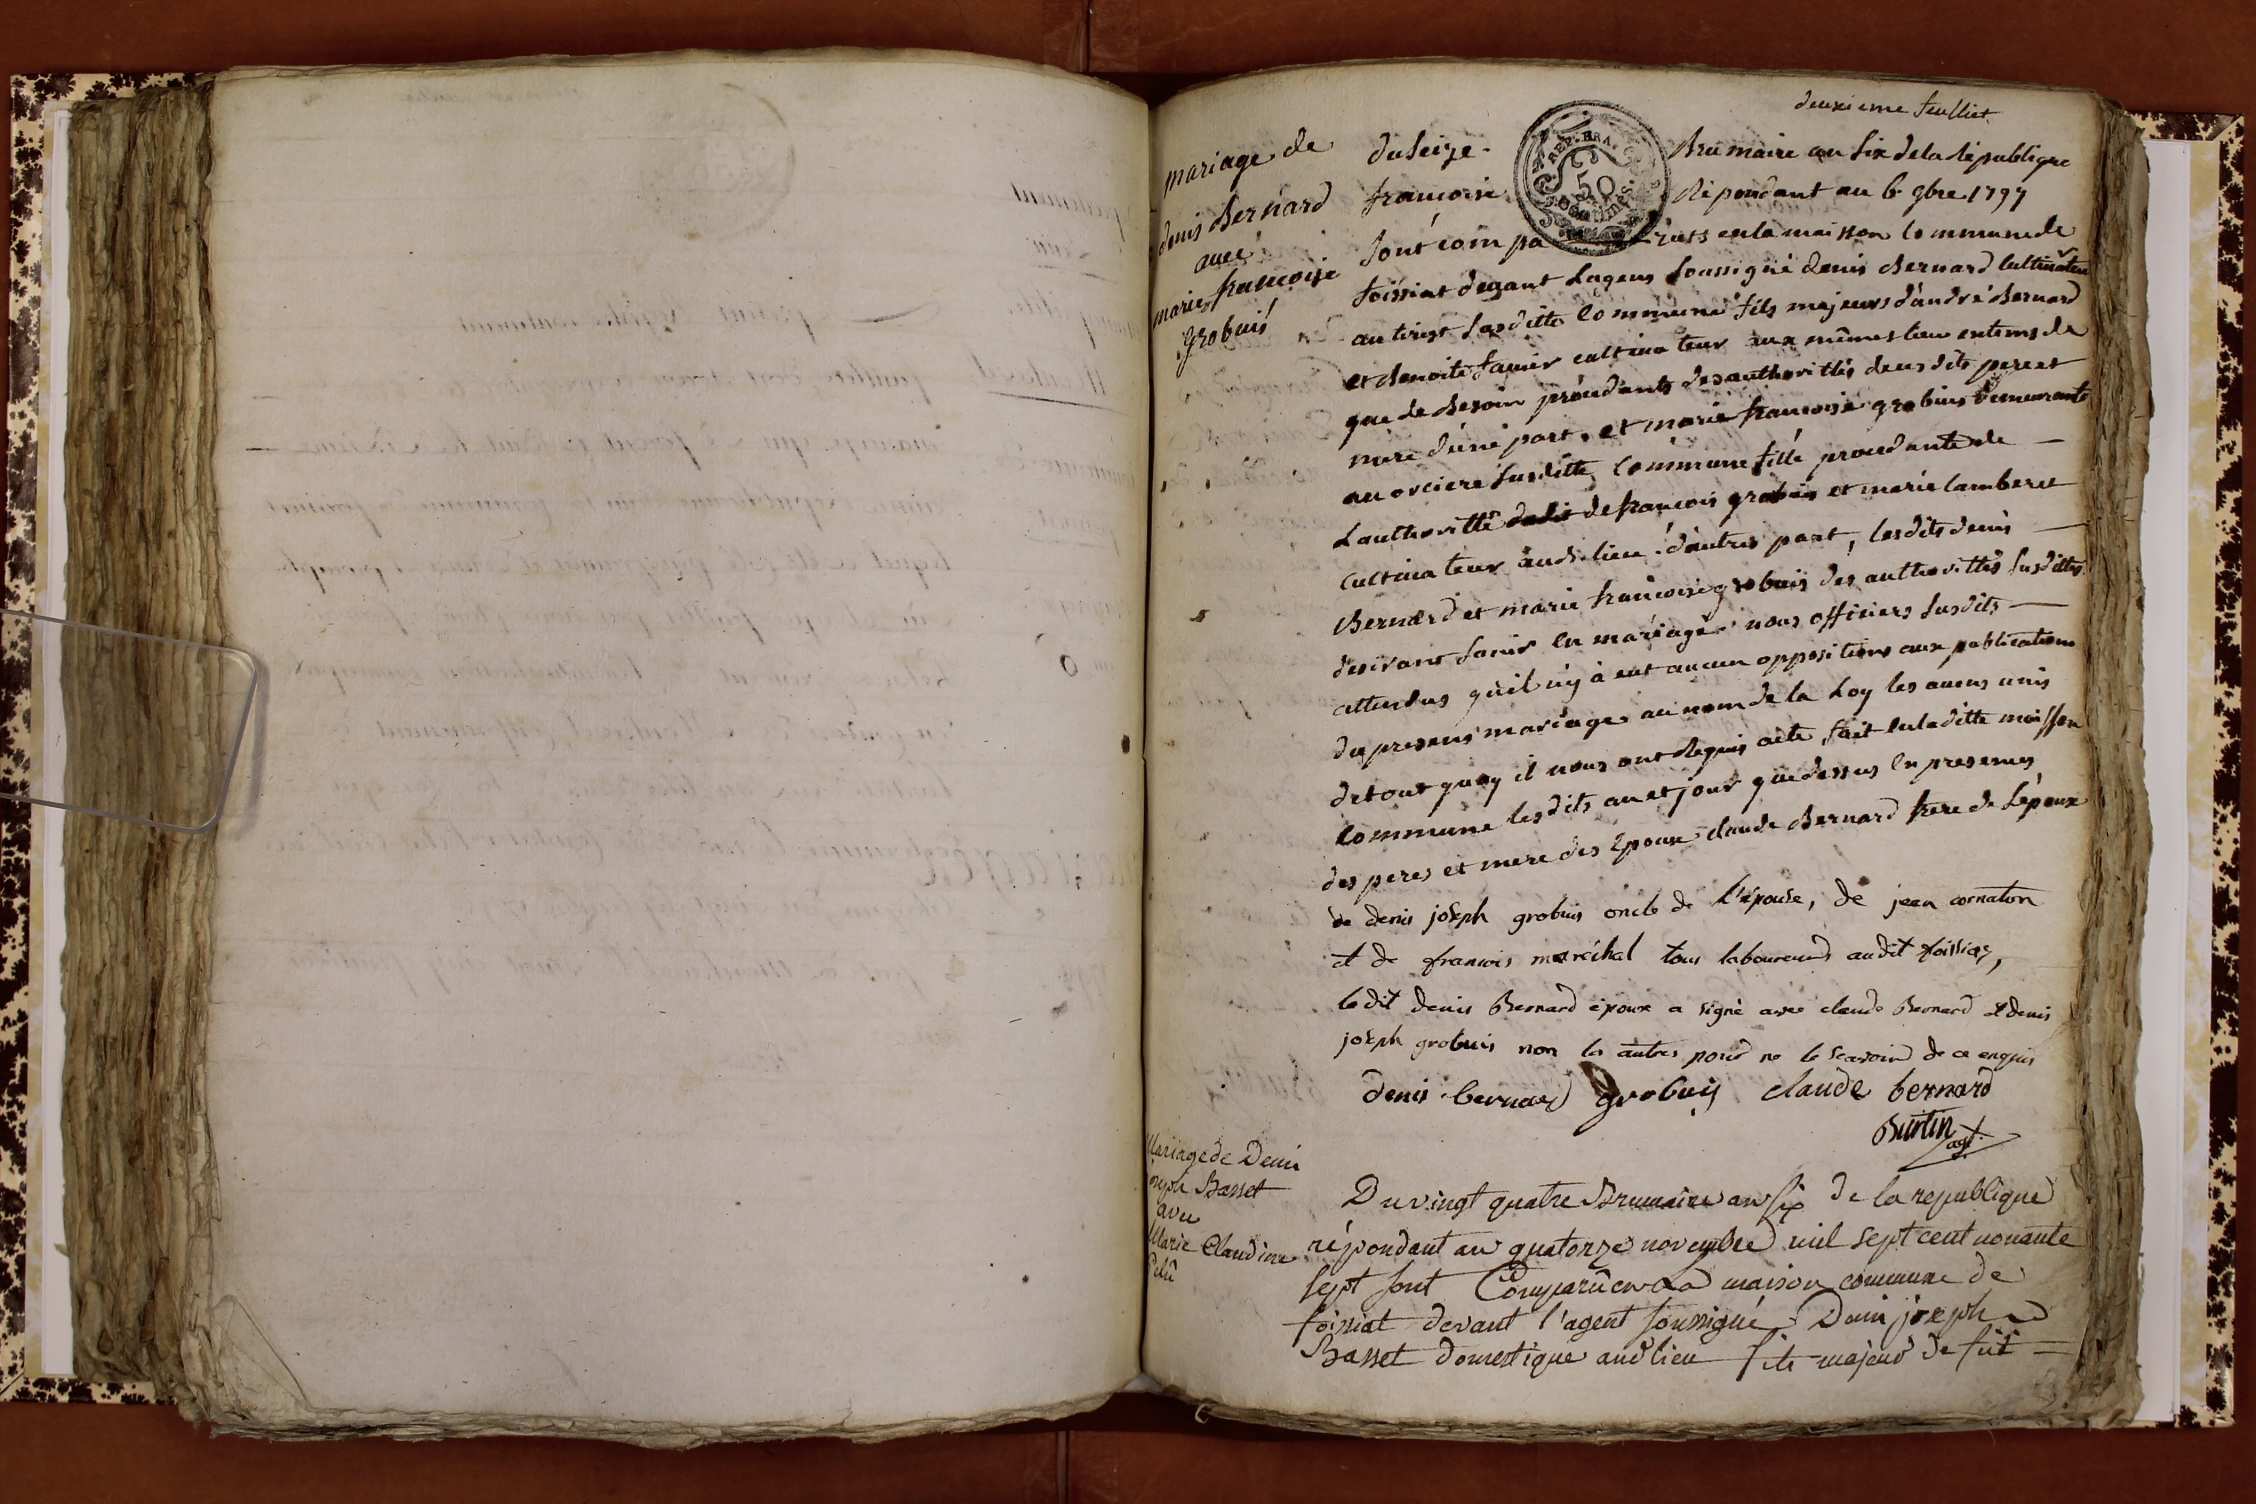 deuxieme feulliet
mariage de
denis Bernard
avec
marie francoise
grobuis
du seize Brumaire an six de la republique
francoise Repondant au 6 9bre 1797
REP. FRA.
50
Centimes
sont compa en la maison commune de
foissiat devant Lagent soussigné denis Bernard cultivateur
au susditte commune fils majeurs d'andré Bernard
et Benoite cultivateur aux mêmes lieu entems de
que de Besoin procedants des authorittés de susdits pere et
mere d'une part, et marie francoise grobuis demeurante
au orciere susditte commune fille procedante de
L'authoritté de francois grobuis et marie lamberet
cultivateur audt lieu d'autres part, lesdits denis
Bernard et marie francoise grobuis des authorittés susdittes
desirant sunir en mariage nous officiers susdits
attendus qu'il n'y à eut aucun oppositions aux publications
du presens mariage au nom de la Loy les avens unis
de tout quoy il nous ont requis acte fait en laditte maisson
commune lesdits an et jour que dessus En presences
des peres et mere des Epoux claude Bernard frere de L'époux
de denis joseph grobuis oncle de l'épouse, de jean cornaton
et de francois maréchal tous laboureurs audit foissiaz,
ledit denis Bernard époux a signé avec claude Bernard et denis
joseph grobuis non les autres pour ne le scavoir de ce enquis
denis bernard grobuis claude bernard
Burtin
agt.
Mariage de Denis
joseph Basset
avec
Marie Claudine
Du vingt quatre Brumaire an six de la republique
répondant au quatorze novembre mil sept cent nonante
sept sont Comparû en la maison commune de
foissiat devant l'agent soussigné Denis joseph
Basset domestique audt lieu fils majeur de fût